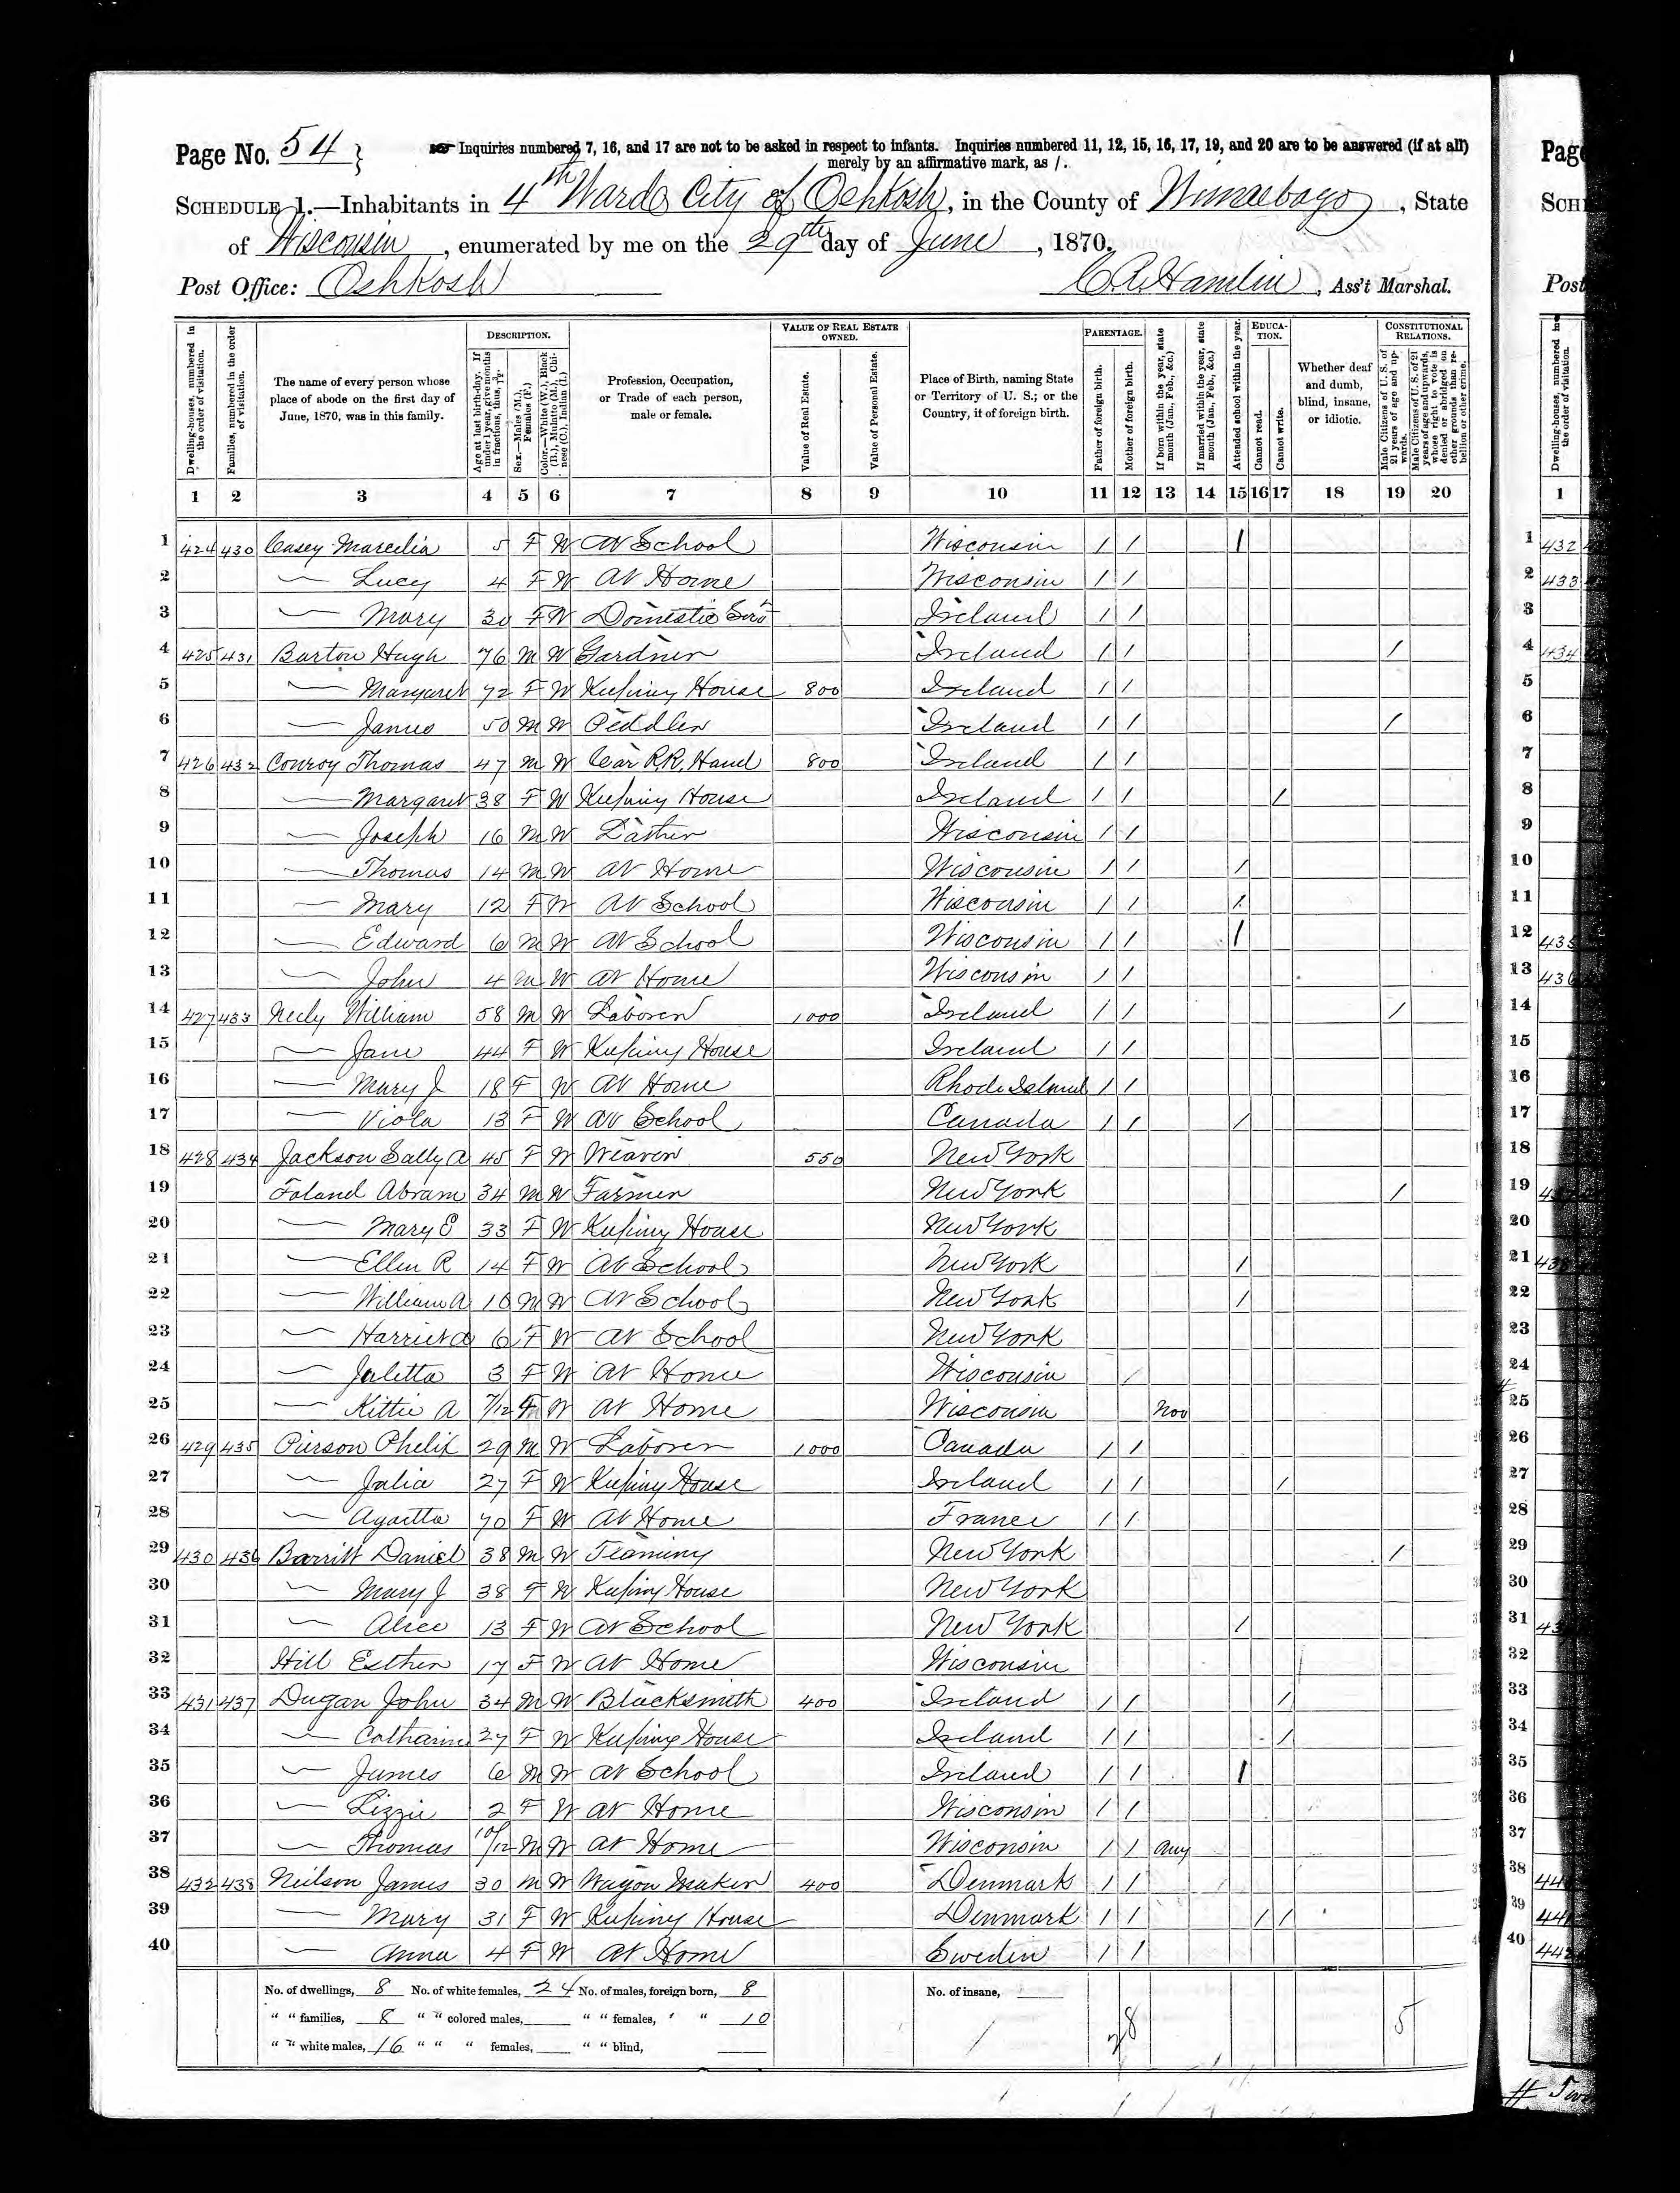 Page No. 54 } Inquiries numbered 7, 16, and 17 are not to be asked in respect to infants. Inquiries numbered 11, 12, 15, 16, 17, 19, and 20 are to be answered (if at all)
merely by an affirmative mark, as /.
SCHEDULE 1.—Inhabitants in 4th Ward City of Oshkosh, in the County of Winnebago, State
of Wisconsin, enumerated by me on the 29th day of June, 1870.
Post Office: Oshkosh C.A. Hamlin, Ass't Marshal.
Dwelling-houses, numbered in the order of visitation.
Families, numbered in the order of visitation.
The name of every person whose place of abode on the first day of June, 1870, was in this family.
DESCRIPTION.
Age at last birth-day. If under 1 year, give months in fractions, thus, 3/12.
Sex.—Males (M.), Females (F.)
Color.—White (W.), Black (B.), Mulatto (M.), Chinese (C.), Indian (I.)
Profession, Occupation, or Trade of each person, male or female.
VALUE OF REAL ESTATE OWNED.
Value of Real Estate.
Value of Personal Estate.
Place of Birth, naming State or Territory of U. S.; or the Country, if of foreign birth.
PARENTAGE.
Father of foreign birth.
Mother of foreign birth.
If born within the year, state month (Jan., Feb., &c.)
If married within the year, state month (Jan., Feb., &c.)
Attended school within the year.
EDUCATION.
Cannot read.
Cannot write.
Whether deaf and dumb, blind, insane, or idiotic.
CONSTITUTIONAL RELATIONS.
Male Citizens of U. S. of 21 years of age and upwards.
Male Citizens of U. S. of 21 years of age and upwards, whose right to vote is denied or abridged on other grounds than rebellion or other crime.
1 2 3 4 5 6 7 8 9 10 11 12 13 14 15 16 17 18 19 20
1 424 430 Casey Marcelia 5 F W At School Wisconsin / / /
2 — Lucy 4 F W At Home Wisconsin / /
3 — Mary 30 F W Domestic Servt Ireland / /
4 425 431 Barton Hugh 76 M W Gardner Ireland / / /
5 — Margaret 72 F W Keeping House 800 Ireland / /
6 — James 50 M W Peddler Ireland / / /
7 426 432 Conroy Thomas 47 M W Car R.R. Hand 800 Ireland / /
8 — Margaret 38 F W Keeping House Ireland / / /
9 — Joseph 16 M W Lather Wisconsin / /
10 — Thomas 14 M W At Home Wisconsin / / /
11 — Mary 12 F W At School Wisconsin / / /
12 — Edward 6 M W At School Wisconsin / / /
13 — John 4 M W At Home Wisconsin / /
14 427 433 Neely William 58 M W Laborer 1000 Ireland / / /
15 — Jane 44 F W Keeping House Ireland / /
16 — Mary J 18 F W At Home Rhode Island / /
17 — Viola 13 F W At School Canada / / /
18 428 434 Jackson Sally A 45 F W Weaver 550 New York
19 Foland Abram 34 M W Farmer New York /
20 — Mary E 33 F W Keeping House New York
21 — Ellen R 14 F W At School New York /
22 — William A 10 M W At School New York /
23 — Harriet A 6 F W At School New York
24 — Juletta 3 F W At Home Wisconsin /
25 — Kittie A 7/12 F W At Home Wisconsin Nov
26 429 435 Pierson Phelix 29 M W Laborer 1000 Canada / /
27 — Julia 27 F W Keeping House Ireland / / /
28 — Agatta 70 F W At Home France / /
29 430 436 Barritt Daniel 38 M W Teaming New York /
30 — Mary J 38 F W Keeping House New York
31 — Alice 13 F W At School New York /
32 Hill Esther 17 F W At Home Wisconsin
33 431 437 Dugan John 34 M W Blacksmith 400 Ireland / / /
34 — Catharine 27 F W Keeping House Ireland / / /
35 — James 6 M W At School Ireland / / /
36 — Lizzie 2 F W At Home Wisconsin / /
37 — Thomas 10/12 M W At Home Wisconsin / / Aug
38 432 438 Neilson James 30 M W Wagon Maker 400 Denmark / /
39 — Mary 31 F W Keeping House Denmark / / / /
40 — Anna 4 F W At Home Sweden / /
No. of dwellings, 8 No. of white females, 24 No. of males, foreign born, 8 No. of insane,
" " families, 8 " " colored males, " " females, " " 10 28 5
" " white males, 16 " " " females, " " blind,